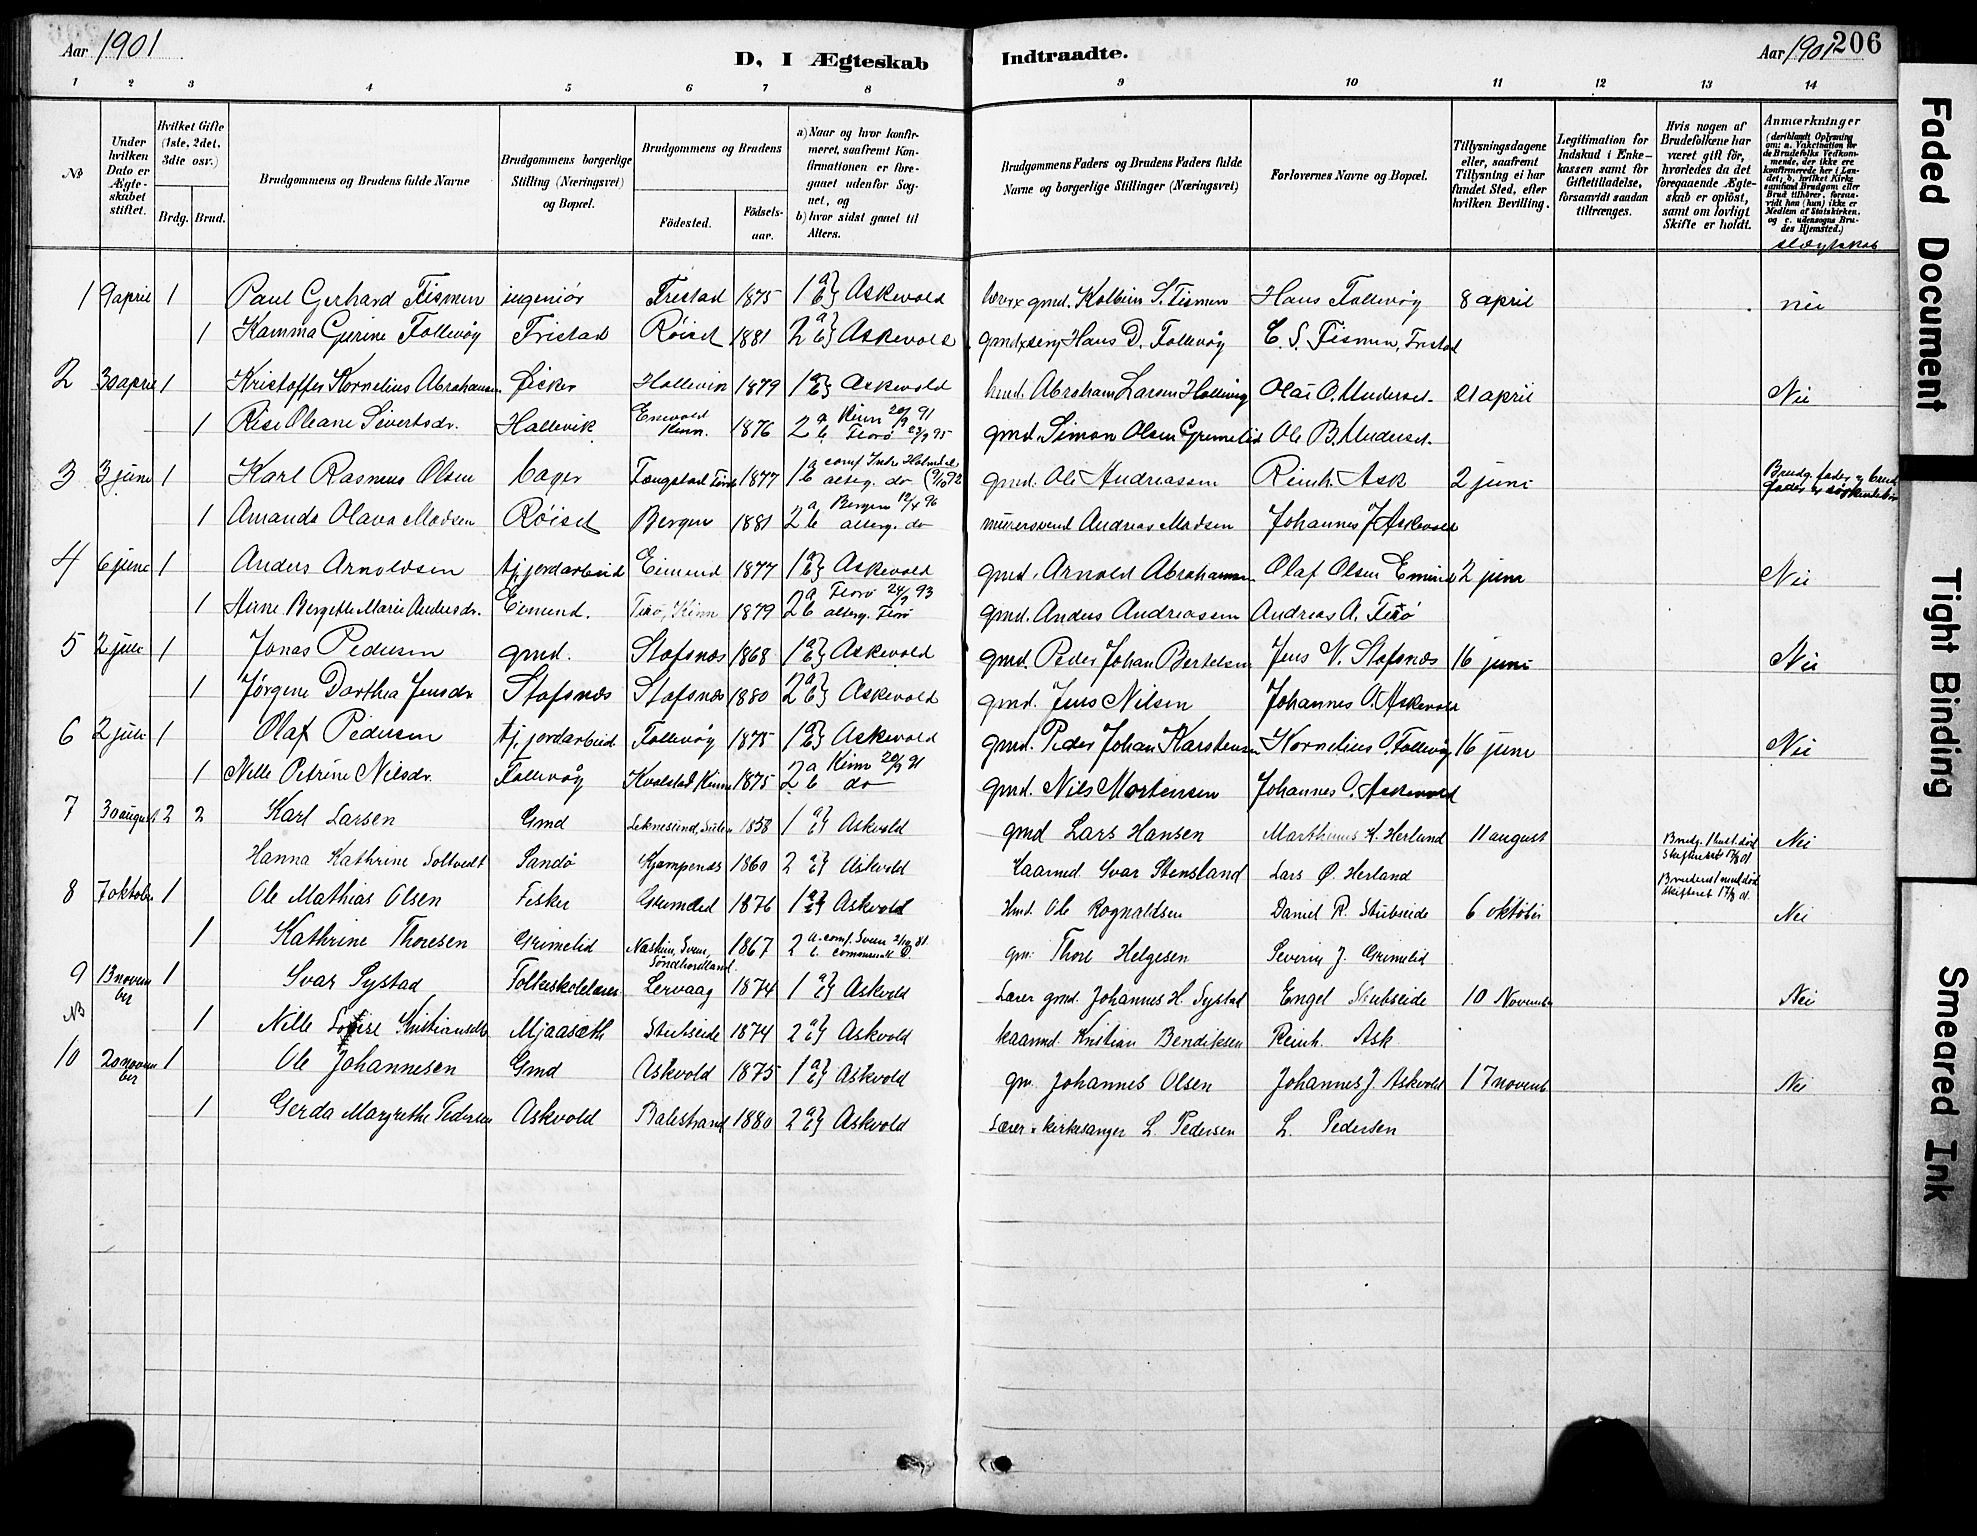 Aar 1901
D, I Ægteskab Indtraadte.
Aar 1901 206
1 2 3 4 5 6 7 8 9 10 11 12 13 14
No
Under hvilken Dato er Ægteskabet stiftet.
Hvilket Gifte (1ste, 2det, 3die osv.)
Brdg. Brud.
Brudgommens og Brudens fulde Navne
Brudgommens borgerlige Stilling (Næringsvei) og Bopæl.
Brudgommens og Brudens
Fødested. Fødselsaar.
a) Naar og hvor konfirmeret, saafremt Konfirmationen er foregaaet udenfor Sognet, og
b) hvor sidst gaaet til Alters.
Brudgommens Faders og Brudens Faders fulde Navne og borgerlige Stillinger (Næringsvei)
Forlovernes Navne og Bopæl.
Tillysningsdagene eller, saafremt Tillysning ei har fundet Sted, efter hvilken Bevilling.
Legitimation for Indskud i Enkekassen samt for Giftetilladelse, forsaavidt saadan tiltrænges.
Hvis nogen af Brudefolkene har været gift før, hvorledes da det foregaaende Ægteskab er opløst, samt om lovligt Skifte er holdt.
Anmærkninger (deriblandt Oplysning om: a. Vaksination for de Brudefolks Vedkommende, der ikke ere konfirmerede her i Landet; b, hvilket Kirkesamfund Brudgom eller Brud tilhører, forsaavidt han (hun) ikke er Medlem af Statskirken, og c. udensogns Brudes Hjemsted.)
slægtskab
1 9 april 1 Paul Gerhard Fismen ingeniør Fristad 1875 1 a b} Askevold lærer gmd. Kolbein S. Fismen Hans Follevøg 8 april nei
1 Kamma Gjerine Follevøg Fristad Røiset 1881 2 a b} Askevold Hans D. Follevøg E. S. Fismen, Fristad
2 30 april 1 Kristoffer Kornelius Abrahamsen fisker Hallevik 1879 1 a b} Askevold Abraham Larsen Olai O. Underset 21 april Nei
1 Oleane Sivertsdr. Hallevik Kinn. 1876 2 a Kinn 20/9 91 b Florø 23/9 95 gmd. Simon Olsen Grimelid Ole B. Underset
3 3 juni 1 Karl Rasmus Olsen bager 1877 1 a conf. b alterg. do gmd. Ole Andreassen Reinh. Ask 2 juni Brudg. fader og brud. fader er
1 Amanda Olava Madsen Røiset Bergen 1881 2 a Bergen 12/4 96 b alterg. do murersvend Andreas Madsen Johannes J. Askevold
4 6 juni 1 Anders Arnoldsen tj. jordarbeid Eimund 1877 1 a b} Askevold gmd. Arnold Abrahamsen Olaf Olsen Emund 2 juni Nei
1 Bergette Marie Andersdr. Eimund. Kinn 1879 2 a Florø 24/9 93 b alterg. Florø gmd. Anders Andreassen Andreas A.
5 2 juli 1 Jonas Pedersen gmd. Stafsnæs 1868 1 a b} Askevold gmd. Peder Johan Bertelsen Jens N. Stafsnæs 16 juni Nei
1 Jørgene Dorthea Jensdr Stafsnæs Stafsnæs 1880 2 a b} Askevold gmd. Jens Nilsen Johannes O. Askevold
6 2 juli 1 Olaf Pedersen tj. jordarbeid Follevøg 1875 1 a b} Askevold gmd. Peder Johan Karstensen Kornelius O. Follevøg 16 juni Nei
1 Nille Petrine Nilsdr. Follevøg Kvalstad, Kinn 1875 2 a Kinn 20/9 91 b do gmd. Nils Mortensen Johannes O. Askevold
7 30 august 2 2 Karl Larsen Gmd 1858 1 a b} Askvold gmd Lars Hansen Marthinus A. Herland 11 august Brudg. 1 hust. død Skifteret Nei
Hanna Kathrine Soltvedt Sandø Kjempenæs 1860 2 a b} Askvold Kaarmd. Ivar Stensland Lars Ø. Herland Brudens 1 md. død Skifteret
8 7 oktober 1 Ole Mathias Olsen Fisker Grimelid 1876 1 a b} Askvold Hmd. Ole Rognaldsen Daniel R. Stubseide 6 oktober Nei
1 Kathrine Thoresen Grimelid Søndhordland. 1867 2 a. conf. b. communik. gm. Thore Helgesen Severin J. Grimelid
9 13 november 1 Ivar Systad Folkeskolelærer Lervaag 1874 1 a b} Askvold Lærer gmd. Johannes H. Systad Engel Stubseide 10 November Nei
NB 1 Nille Lovise Kristiansdtr Mjaasæth Stubseide 1874 2 a b} Askvold kaarmd. Kristian Bendiksen Reinh. Ask
10 20 november 1 Ole Johannesen Gmd Askvold 1875 1 a b} Askvold gm. Johannes Olsen Johannes J. Askvold 17 novemb Nei
1 Gerda Margrethe Pedersen Askvold Balestrand 1880 2 a b} Askvold Lærer & kirkesanger L. Pedersen L. Pedersen
Faded Document
Tight Binding
Smeared Ink